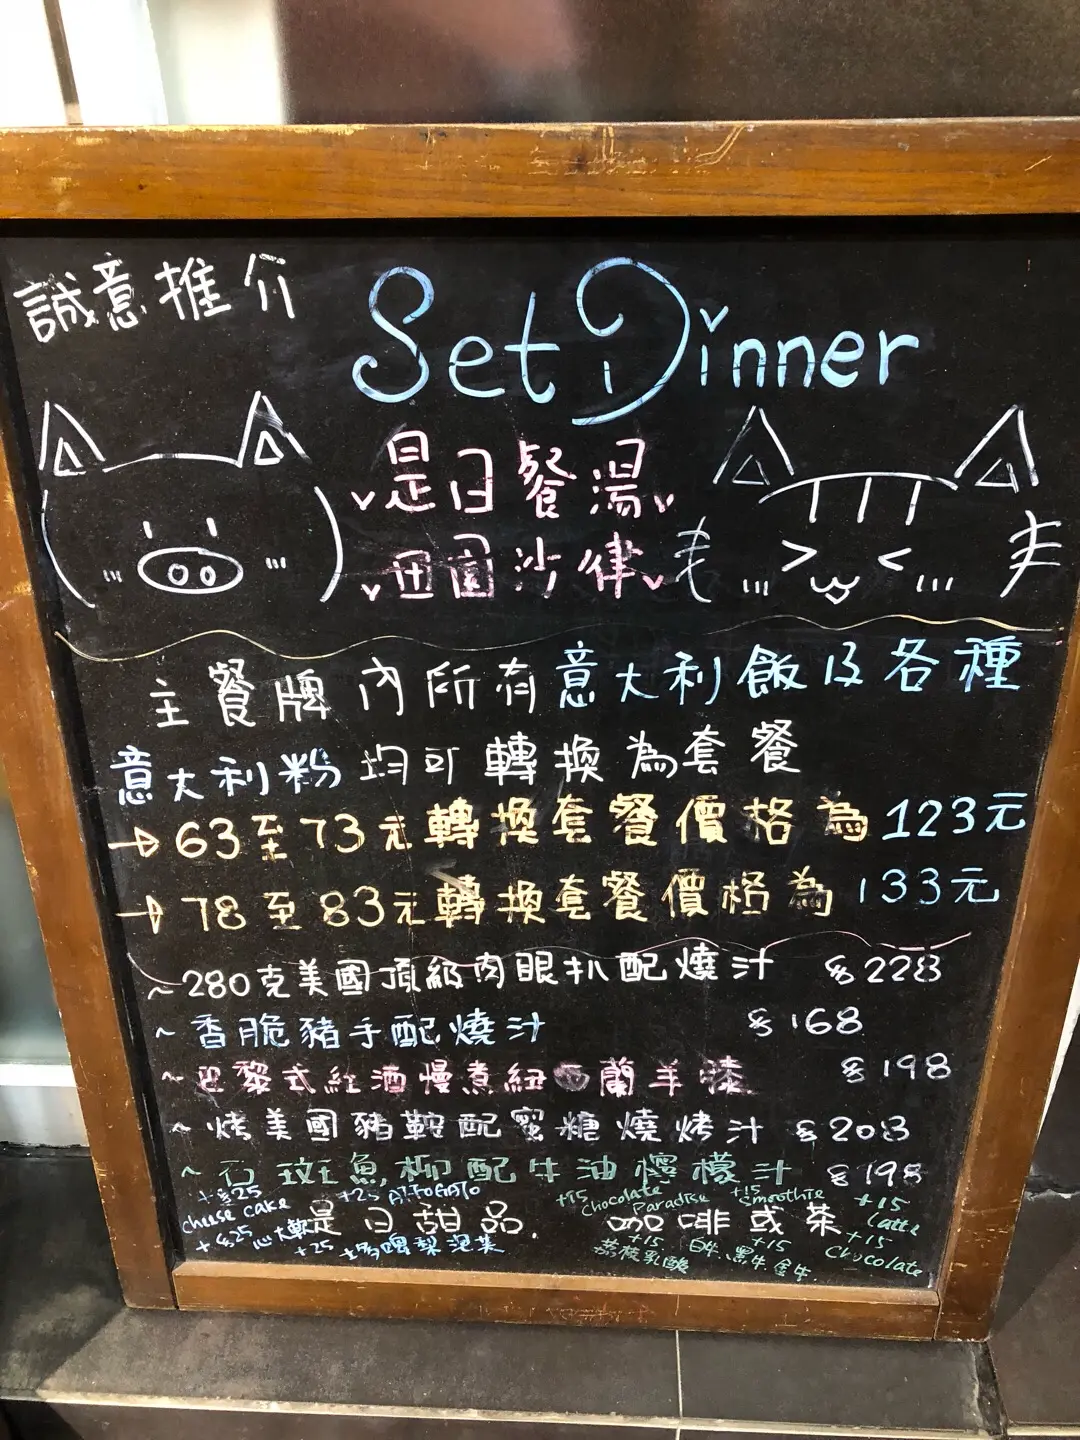 誠意推介
Set Dinner
是日餐湯
田園沙律
主餐牌內所有意大利飯及各種
意大利粉均可轉換為套餐
→63至73元轉換套餐價格為123元
→78至83元轉換套餐價格為133元
~280克美國頂級肉眼扒配燒汁 $228
~香脆豬手配燒汁 $168
~巴黎式紅酒慢煮紐西蘭羊膝 $198
~烤美國豬鞍配蜜糖燒烤汁 $208
~石斑魚柳配牛油檸檬汁 $198
+$25 cheese cake +25 AFFOGATO +15 Chocolate Paradise +15 Smoothie +15 Latte
是日甜品. 咖啡或茶
+$25 心太軟 +25 +15 荔枝乳酸 +15 白牛.黑牛.金牛. +15 Chocolate